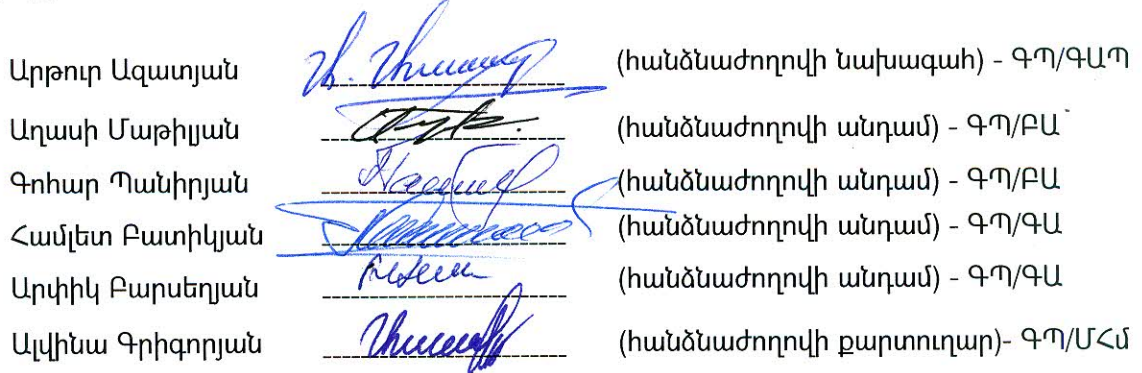 Արթուր Ազատյան (հանձնաժողովի նախագահ) - ԳՊ/ԳԱՊ
Աղասի Մաթիլյան (հանձնաժողովի անդամ) - ԳՊ/ԲԱ
Գոհար Պանիրյան (հանձնաժողովի անդամ) - ԳՊ/ԲԱ
Համլետ Բատիկյան (հանձնաժողովի անդամ) - ԳՊ/ԳԱ
Արփիկ Բարսեղյան (հանձնաժողովի անդամ) - ԳՊ/ԳԱ
Ալվինա Գրիգորյան (հանձնաժողովի քարտուղար)- ԳՊ/ՄՀմ